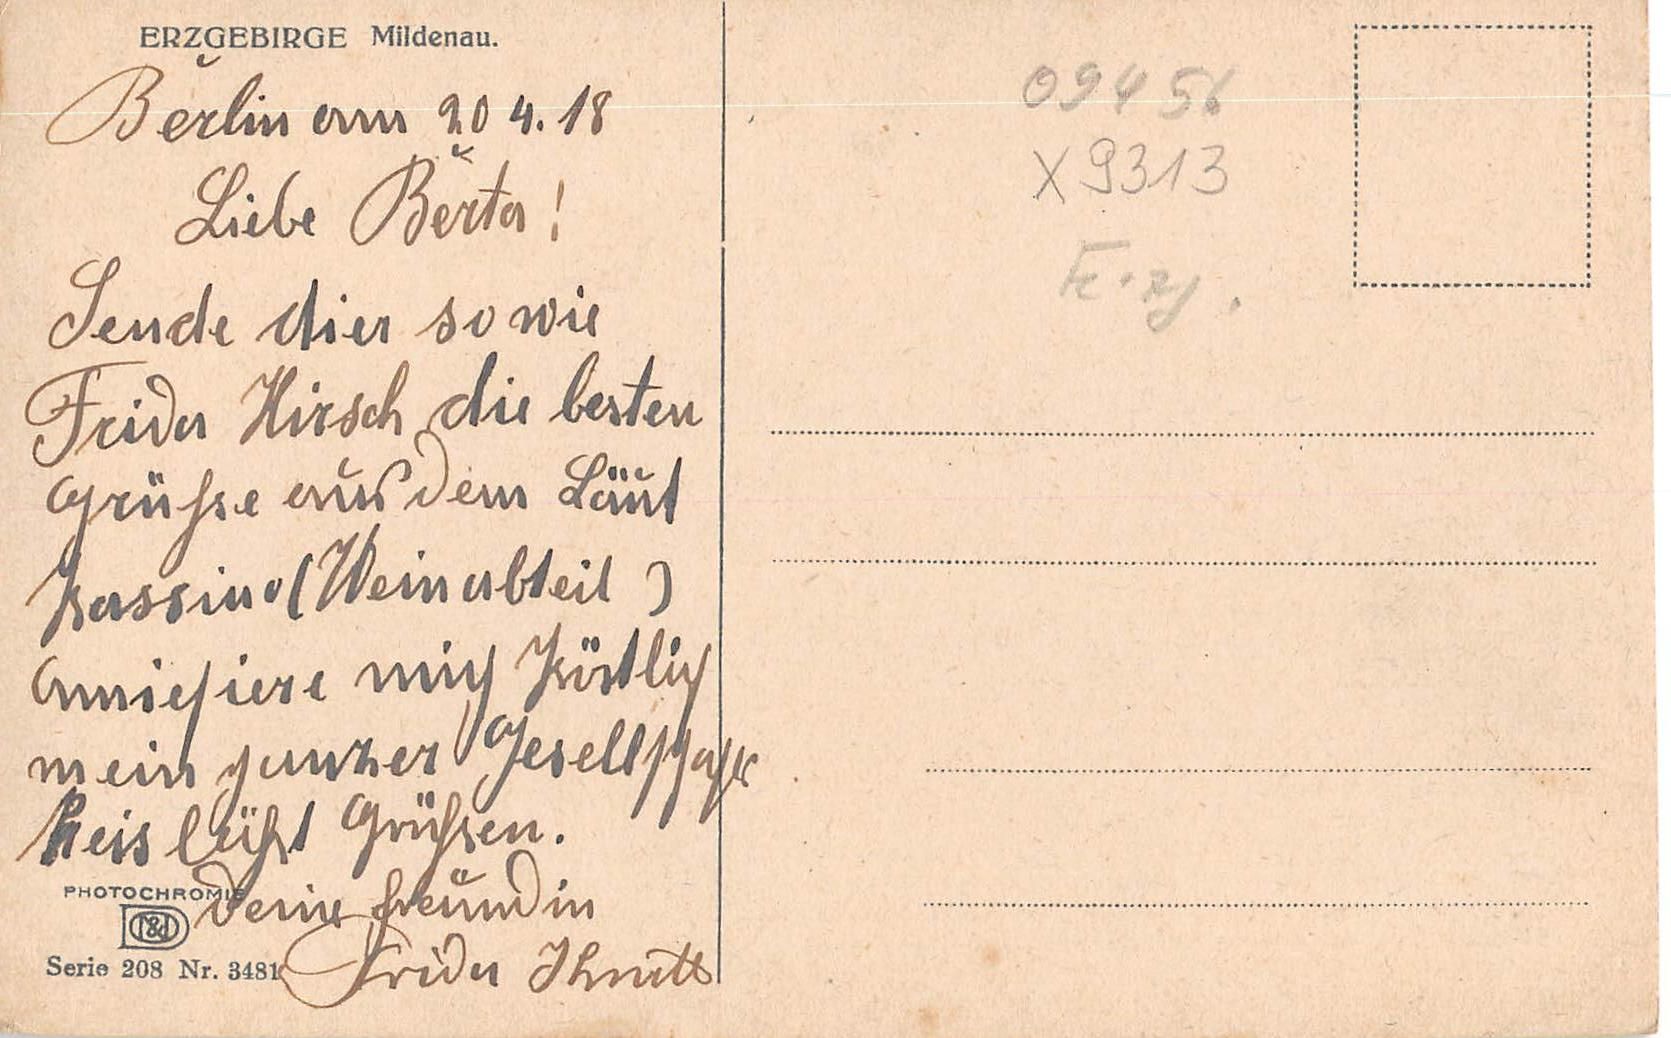 ERZGEBIRGE Mildenau.
Berlin am 20 4. 18
Liebe Berta!
Sende dier so wie
Frida Hirsch die besten
Grüsse aus dem
Kassino (Weinabteil)
amiesiere mich köstlich
mein ganzer Gesellschafts
keis läßt Grüßen.
Deine freundin
Frida
PHOTOCHROMIE
Serie 208 Nr. 3481
09456
X 9313